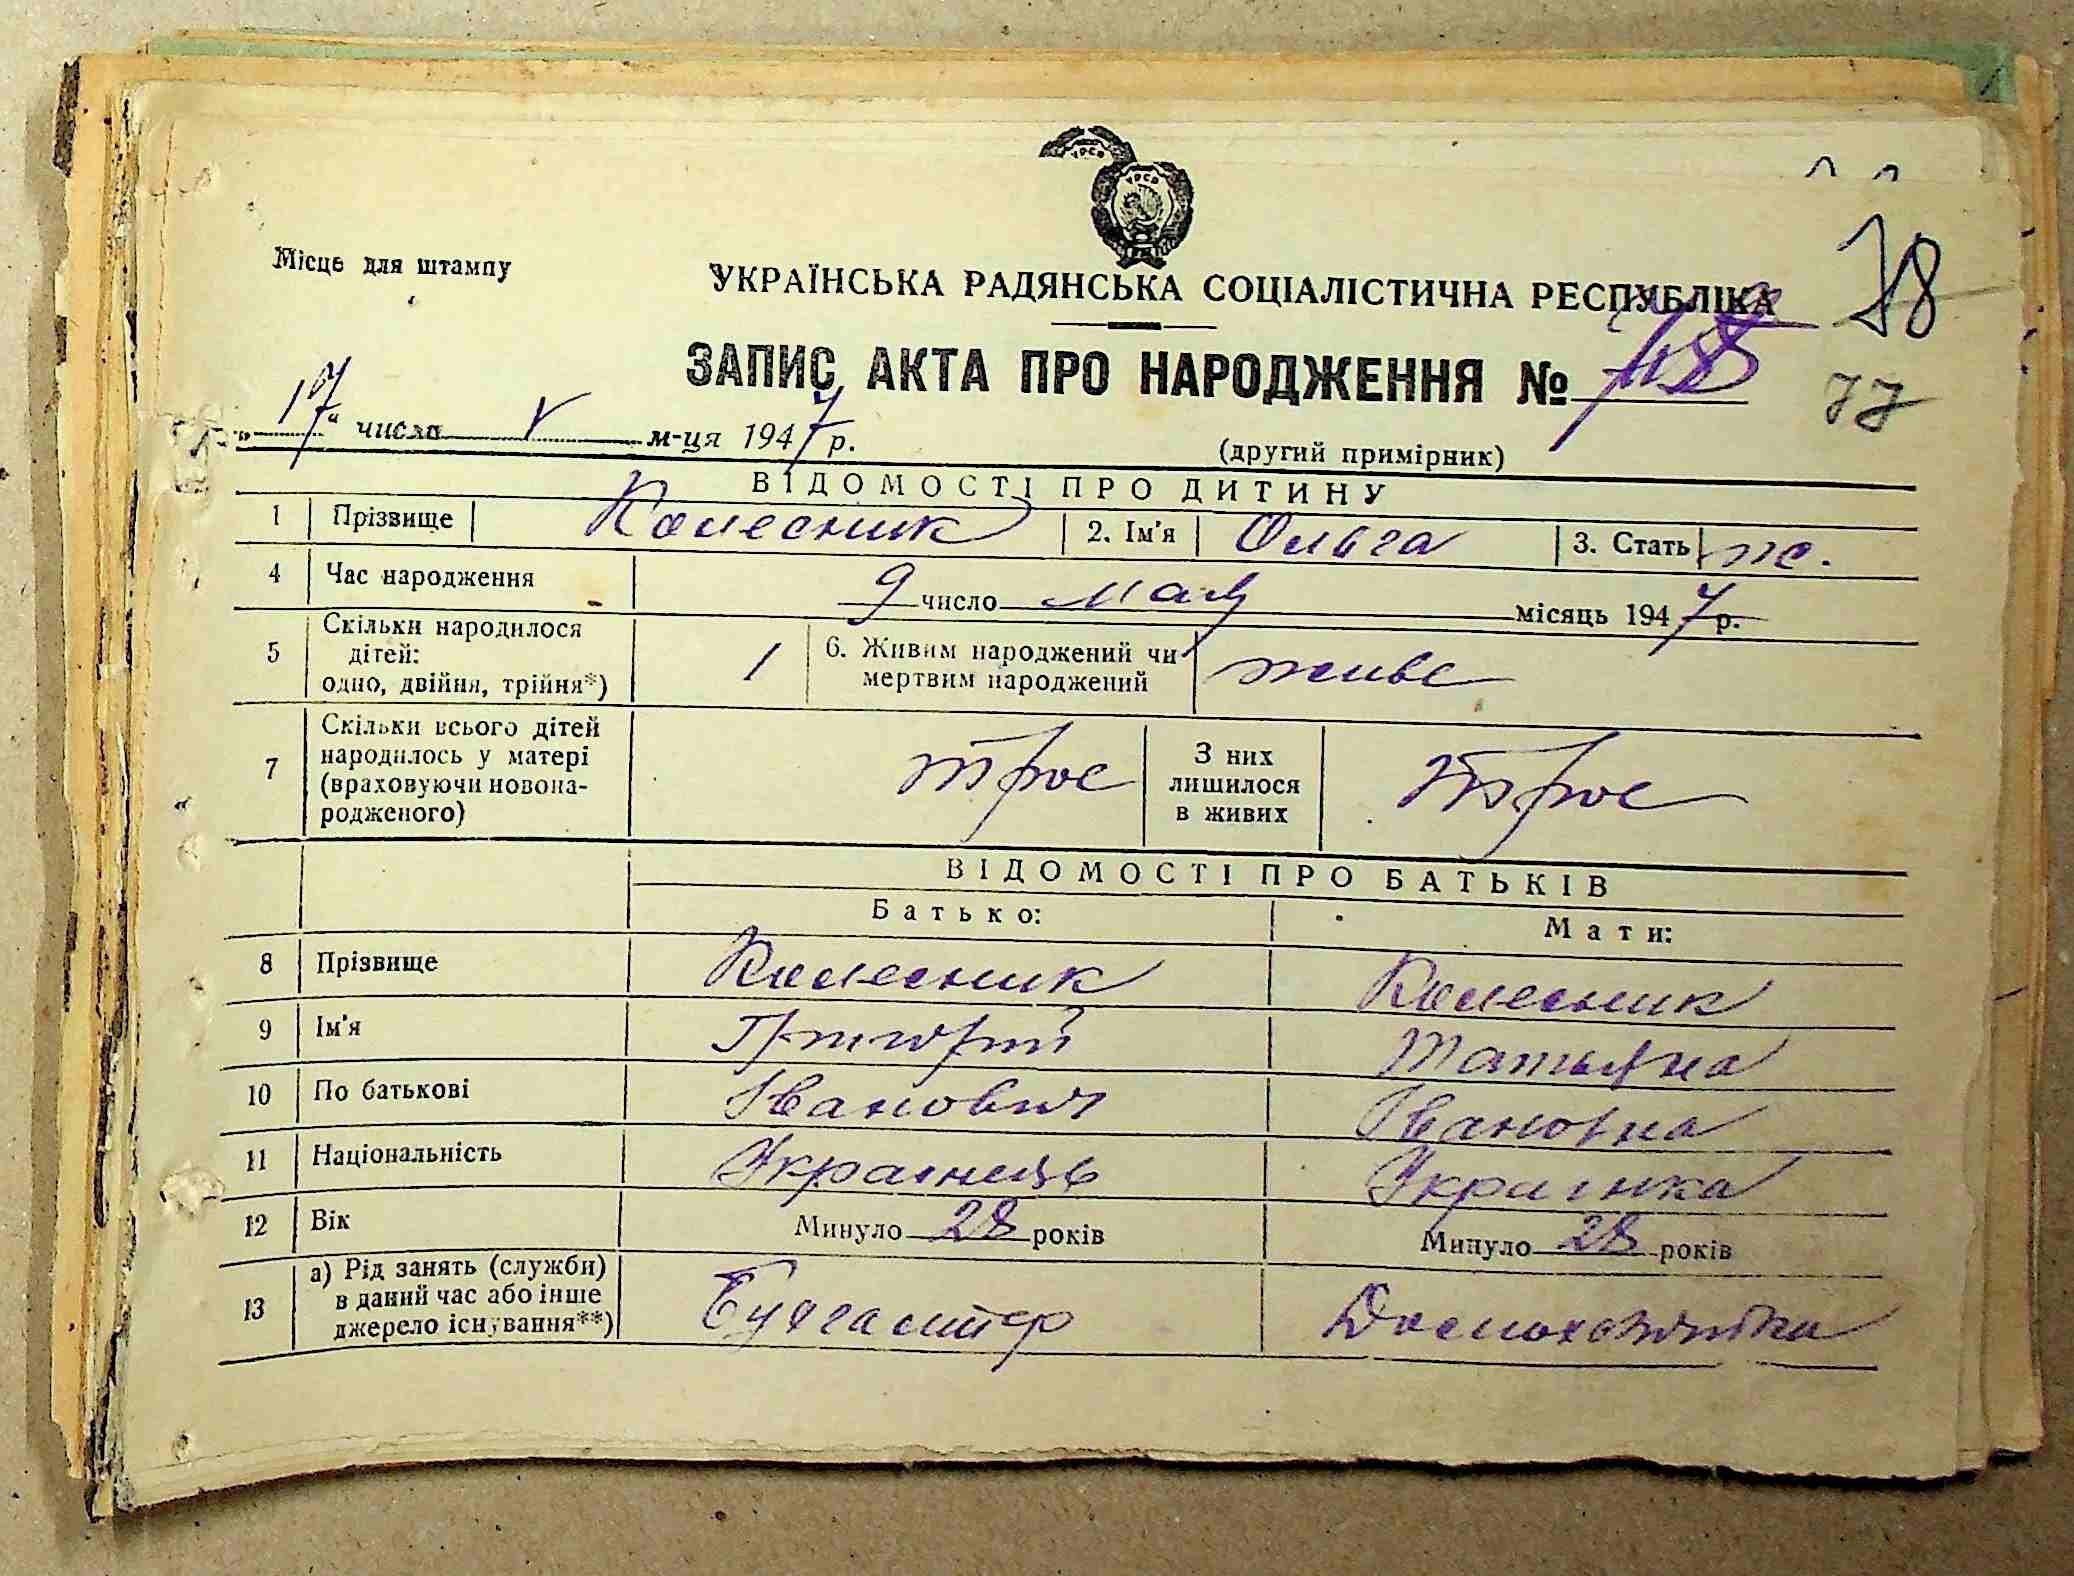 УРСР
УРСР
78
Місце для штампу
УКРАЇНСЬКА РАДЯНСЬКА СОЦІАЛІСТИЧНА РЕСПУБЛІКА
ЗАПИС АКТА ПРО НАРОДЖЕННЯ №
77
„17“ число V м-ця 1947 р.
(другий примірник)
ВІДОМОСТІ ПРО ДИТИНУ
1 Прізвище Колесник 2. Ім'я Ольга 3. Стать ж.
4 Час народження 9 число мая місяць 1947 р.
5 Скільки народилося дітей: одно, двійня, трійня*) 1 6. Живим народжений чи мертвим народжений живе
7 Скільки всього дітей народилось у матері (враховуючи новонародженого) троє З них лишилося в живих троє
ВІДОМОСТІ ПРО БАТЬКІВ
Батько: Мати:
8 Прізвище Колесник Колесник
9 Ім'я Григорий Татьяна
10 По батькові Іванович Івановна
11 Національність Українець Українка
12 Вік Минуло 28 років Минуло 28 років
13 а) Рід занять (служби) в даний час або інше джерело існування**) Бухгалтер Домохозяйка